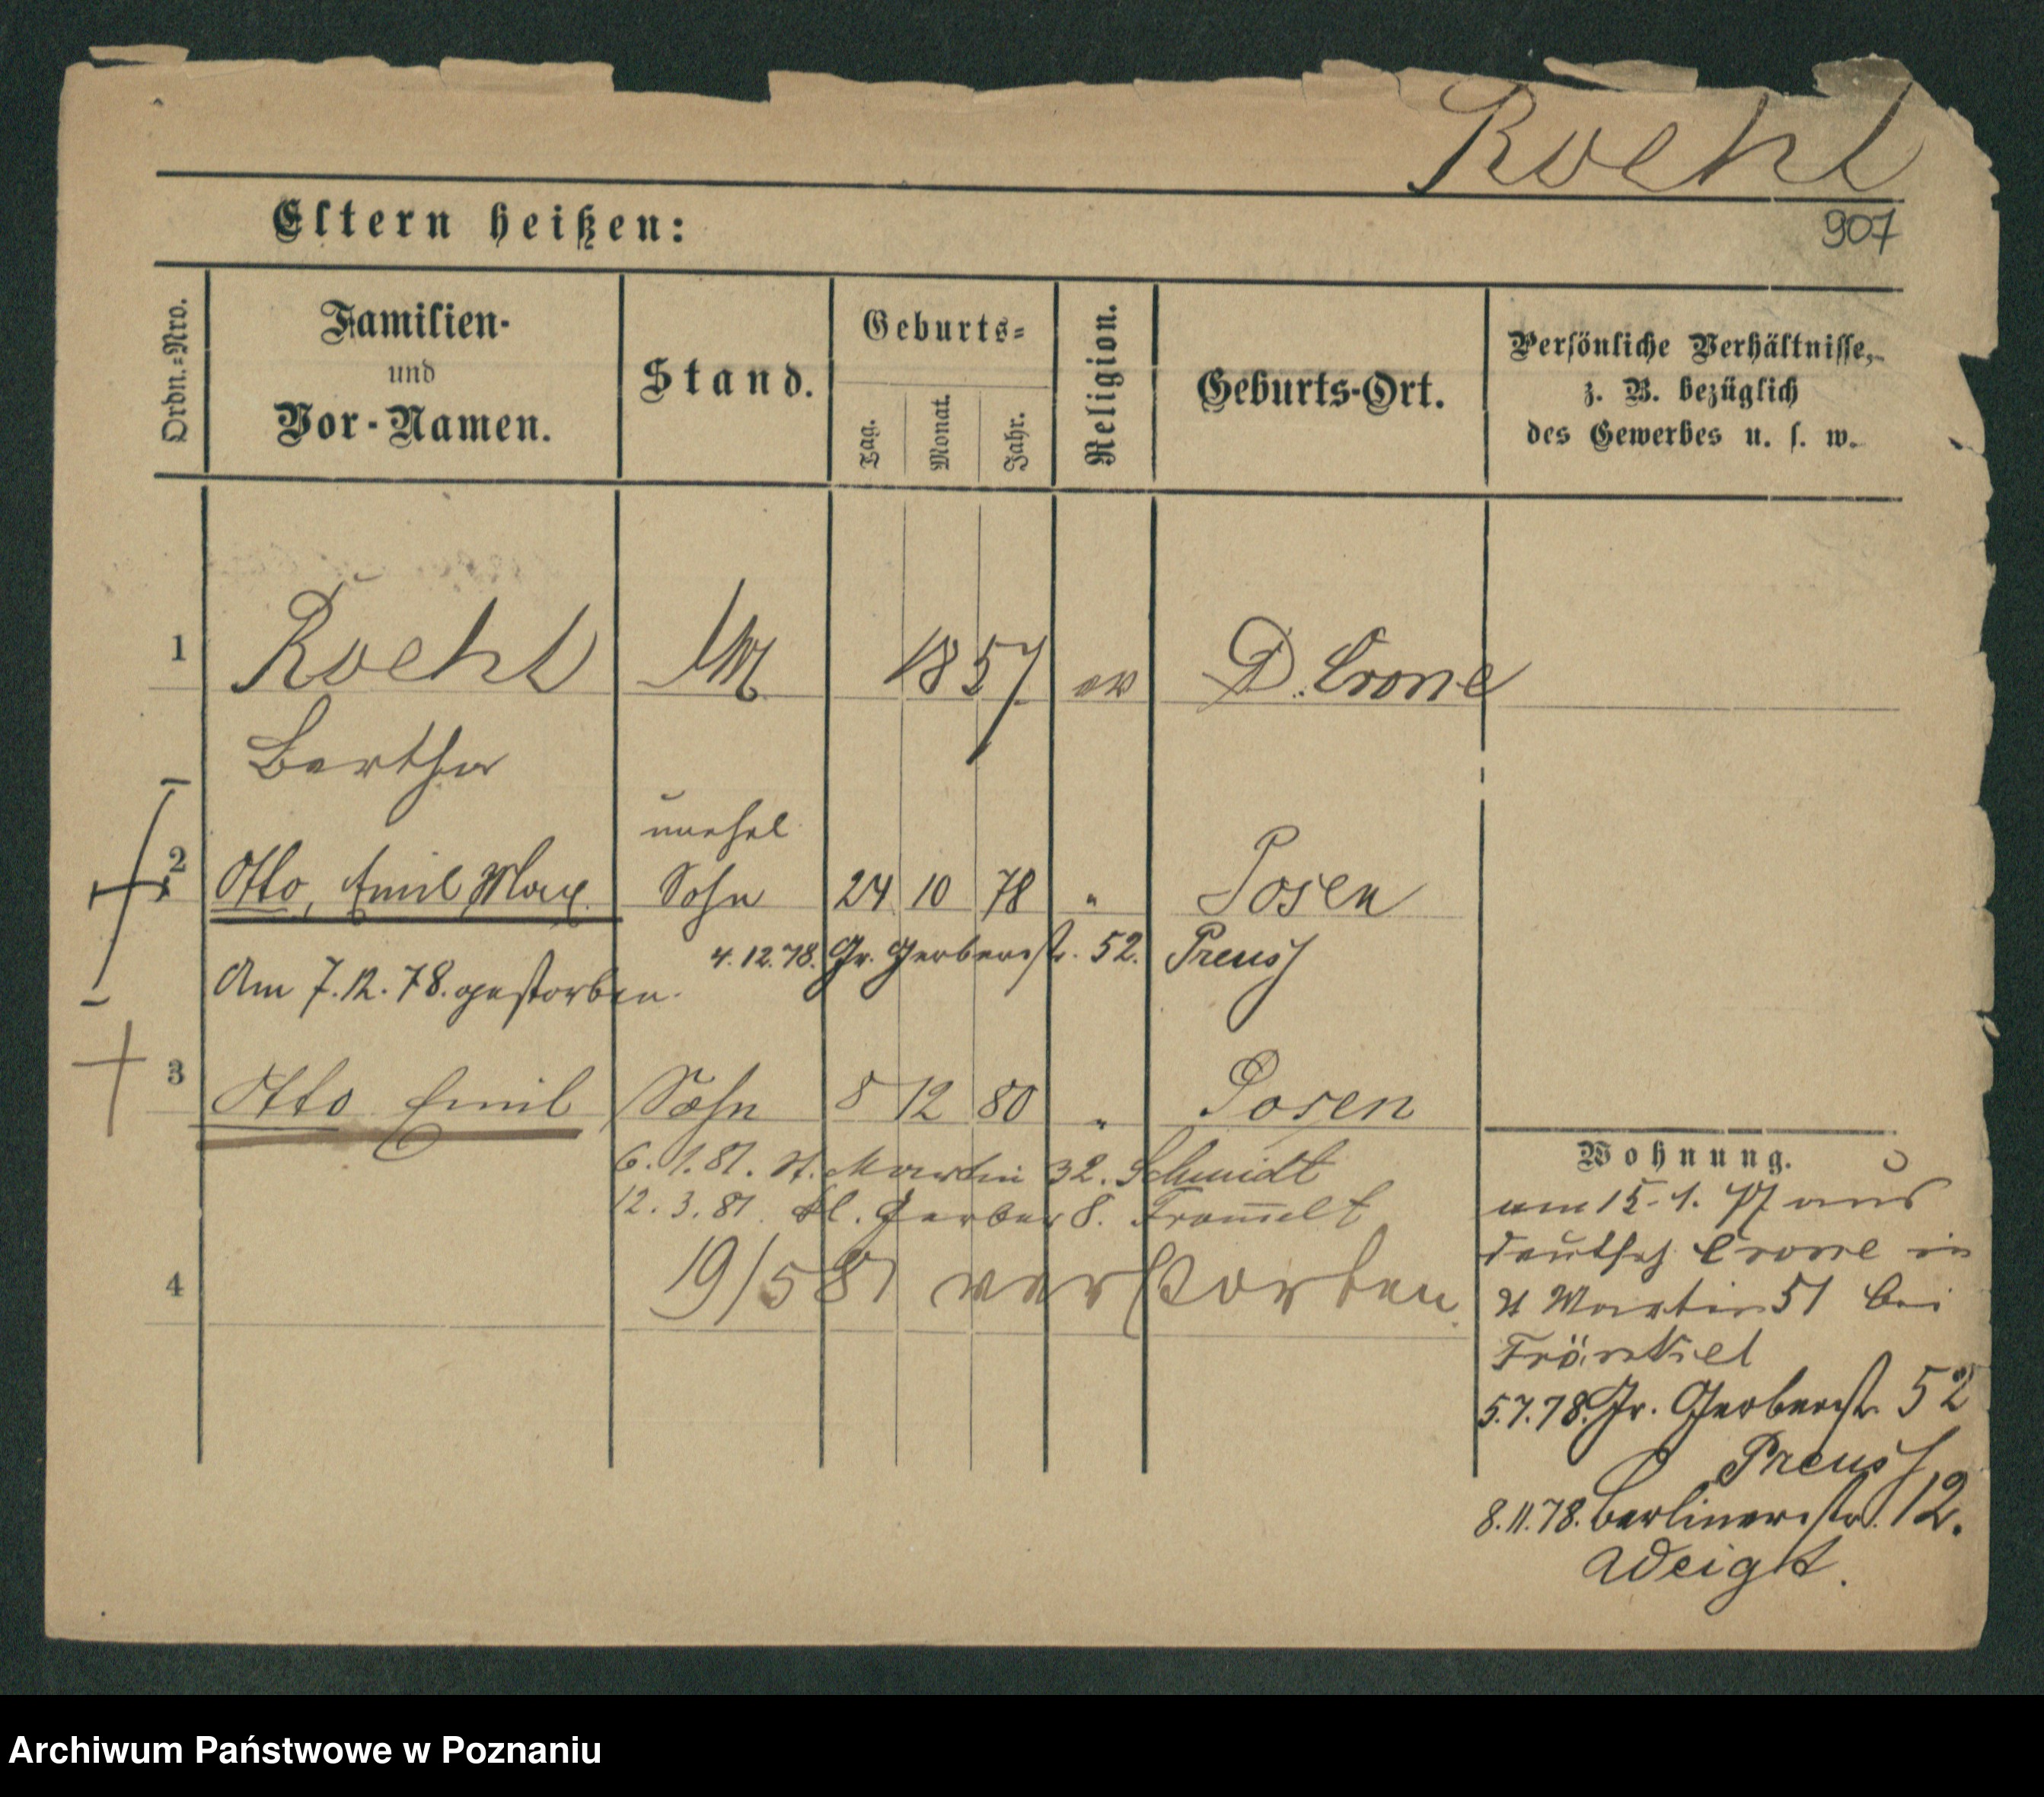 Roehl
907
Eltern heißen:
Ordn.-Nro.
Familien-
und
Vor-Namen.
Stand.
Geburts-
Tag.
Monat.
Jahr.
Religion.
Geburts-Ort.
Persönliche Verhältnisse,
z. B. bezüglich
des Gewerbes u. s. w.
1 Roehl M 1857 ev D. Crone
Bertha
unehel
2 Otto, Emil Max. Sohn 24 10 78 " Posen
4.12.78. Gr. Gerberstr. 52. Preuss
Am 7.12.78. gestorben.
3 Otto Emil Sohn 8 12 80 " Posen
6.1.81. St. Martin 32. Schmidt
12.3.81. Kl. Gerber 8. Frommelt
4 19/5 81 verstorben.
Wohnung.
am 15.1.77 aus
deutsch Crone in
St Martin 51 bei
Fränkel
5.7.78. Gr. Gerberstr. 52
Preuss
8.11.78. Berlinerstr. 12.
Weigt.
Archiwum Państwowe w Poznaniu